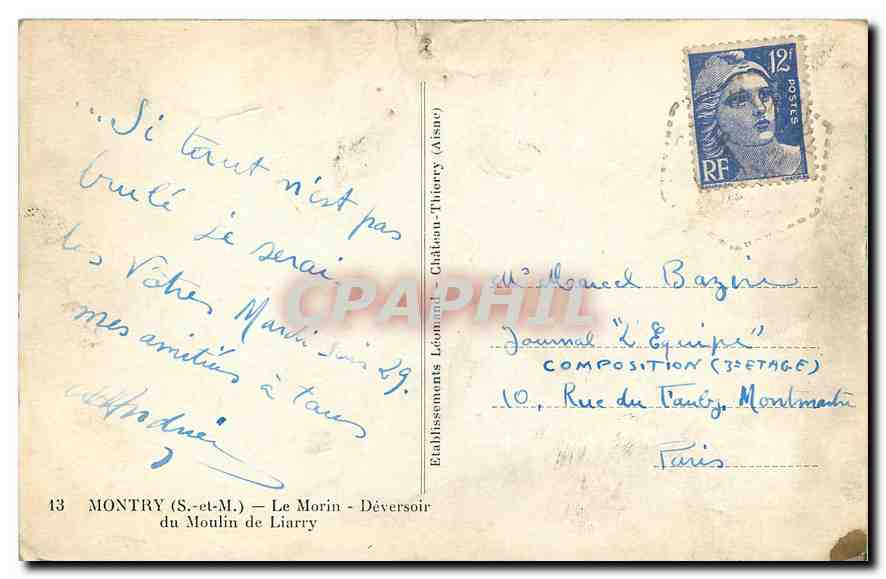 "Si terut n'est pas
brulé je serai
les Vôtres Mardi soir 29.
mes amitiés à tous
12F
POSTES
RF
Etablissements Léomand - Château-Thierry (Aisne)
CPAPHIL
Mr Marcel Bazin
Journal "L'Equipe"
COMPOSITION (3e ETAGE)
10, Rue du Faubg. Montmartre
Paris
13 MONTRY (S.-et-M.) — Le Morin - Déversoir
du Moulin de Liarry